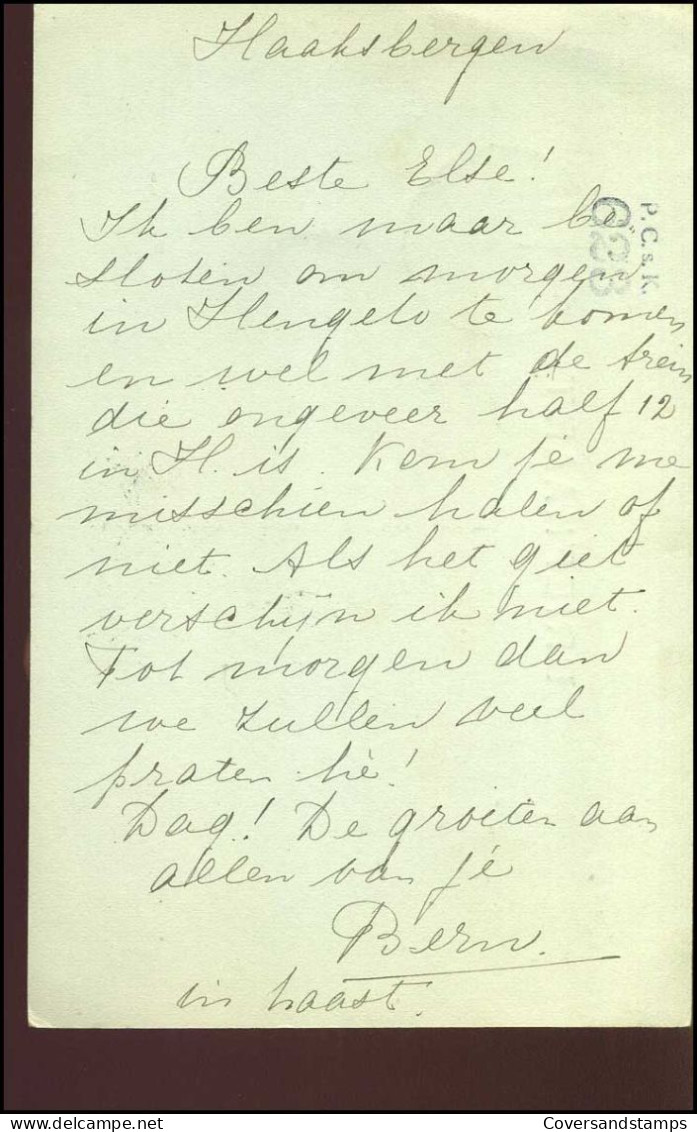 Haaksbergen
Beste Else!
Ik ben maar be"
sloten om morgen
in Hengelo te komen
en wel met de trein
die ongeveer half 12
in H. is. Kom je me
misschien halen of
niet. Als het giet
verschijn ik niet.
Tot morgen dan
we zullen veel
praten hè!
Dag! De groeten aan
allen van je
Bern.
in haast.
P. C. s. K.
623
Coversandstamps